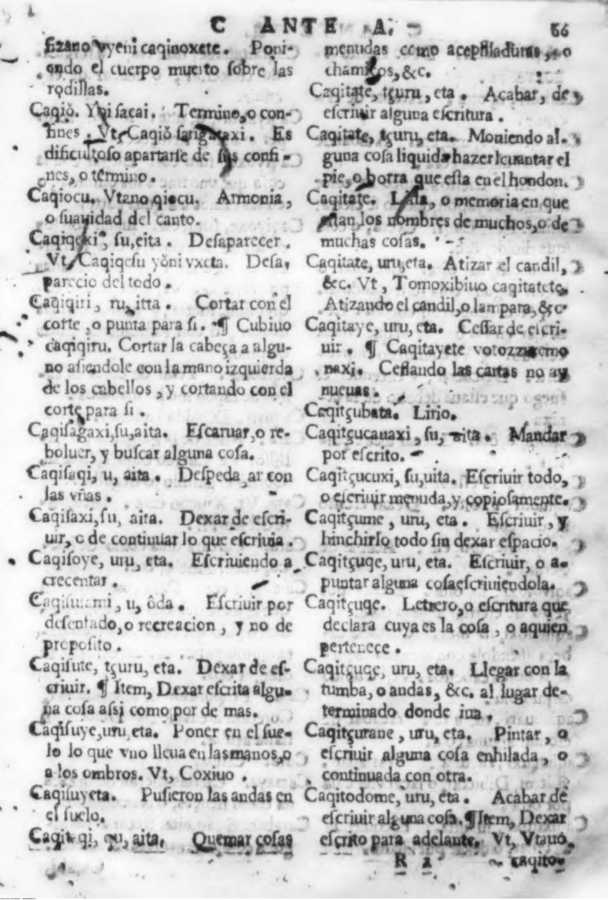 C ANTE A. 66
fizano vyeni caqinoxete. Poni-
endo el cuerpo muerto sobre las
rodillas.
Caqiǒ. Termino, o con-
fines. Vt, Caqiǒ Es
dificultoso apartarse de sus confi-
nes, o termino.
Caqiocu. Vtano qiocu. Armonia,
o suauidad del canto.
su, eita. Desaparecer.
Vt, Caqiqesu yǒni vxeta. Desa,
parecio del todo.
Caqiqiri, ru, itta. Cortar con el
corte, o punta para si. ¶ Cubiuo
caqiqiru. Cortar la cabeça a algu-
no asiendole con la mano izquierda
de los cabellos, y cortando con el
corte para si.
Caqisagaxi, su, aita. Escaruar, o re-
boluer, y buscar alguna cosa.
Caqisaqi, u, aita. Despeda ar con
las vñas.
Caqisaxi, su, aita. Dexar de escri-
uir, o de continuar lo que escriuia.
Caqisoye, uru, eta. Escriuiendo a
crecentar.
u, ôda. Escriuir por
desenfado, o recreacion, y no de
proposito.
Caqisute, tçuru, eta. Dexar de es-
criuir. ¶ Item, Dexar escrita algu-
na cosa assi como por de mas.
Caqisuye, uru, eta. Poner en el sue-
lo lo que vno lleua en las manos, o
a los ombros. Vt, Coxiuo.
Caqisuyeta. Pusieron las andas en
el suelo.
qu, aita. Quemar cosas
menudas como acepilladuras, o
chamiços, &c.
Caqitate, tçuru, eta. Acabar, de
escriuir alguna escritura.
Caqitate, tçuru, eta. Moniendo al-
guna cosa liquida hazer leuantar el
pie, o borra que esta en el hondon.
Caqitate. Lista, o memoria en que
estan los nombres de muchos, o de
muchas cosas.
Caqitate, uru, eta. Atizar el candil,
&c. Vt, Tomoxibiuo caqitatete.
Atizando el candil, o lampara, &c
Caqitaye, uru, eta. Cessar de escri-
uir. ¶ Caqitayete
naxi. Cessando las cartas no ay
nueuas.
Caqitçubata. Lirio.
Caqitçucauaxi, su, aita. Mandar
por escrito.
Caqitçucuxi, su, uita. Escriuir todo,
o escriuir menuda, y copiosamente.
Caqitçume, uru, eta. Escriuir, y
hinchirlo todo sin dexar espacio.
Caqitçuqe, uru, eta. Escriuir, o a-
puntar alguna cosa escriuiendola.
Caqitçuqe. Letrero, o escritura que
declara cuya es la cosa, o a quien
pertenece.
Caqitçuqe, uru, eta. Llegar con la
tumba, o andas, &c. al lugar de-
terminado donde iua.
Caqitçurane, uru, eta. Pintar, o
escriuir alguna cosa enhilada, o
continuada con otra.
Caqitodome, uru, eta. Acabar de
escriuir alguna cosa. ¶ Item, Dexar
escrito para adelante. Vt, Vtauo.
R 2 caqito-